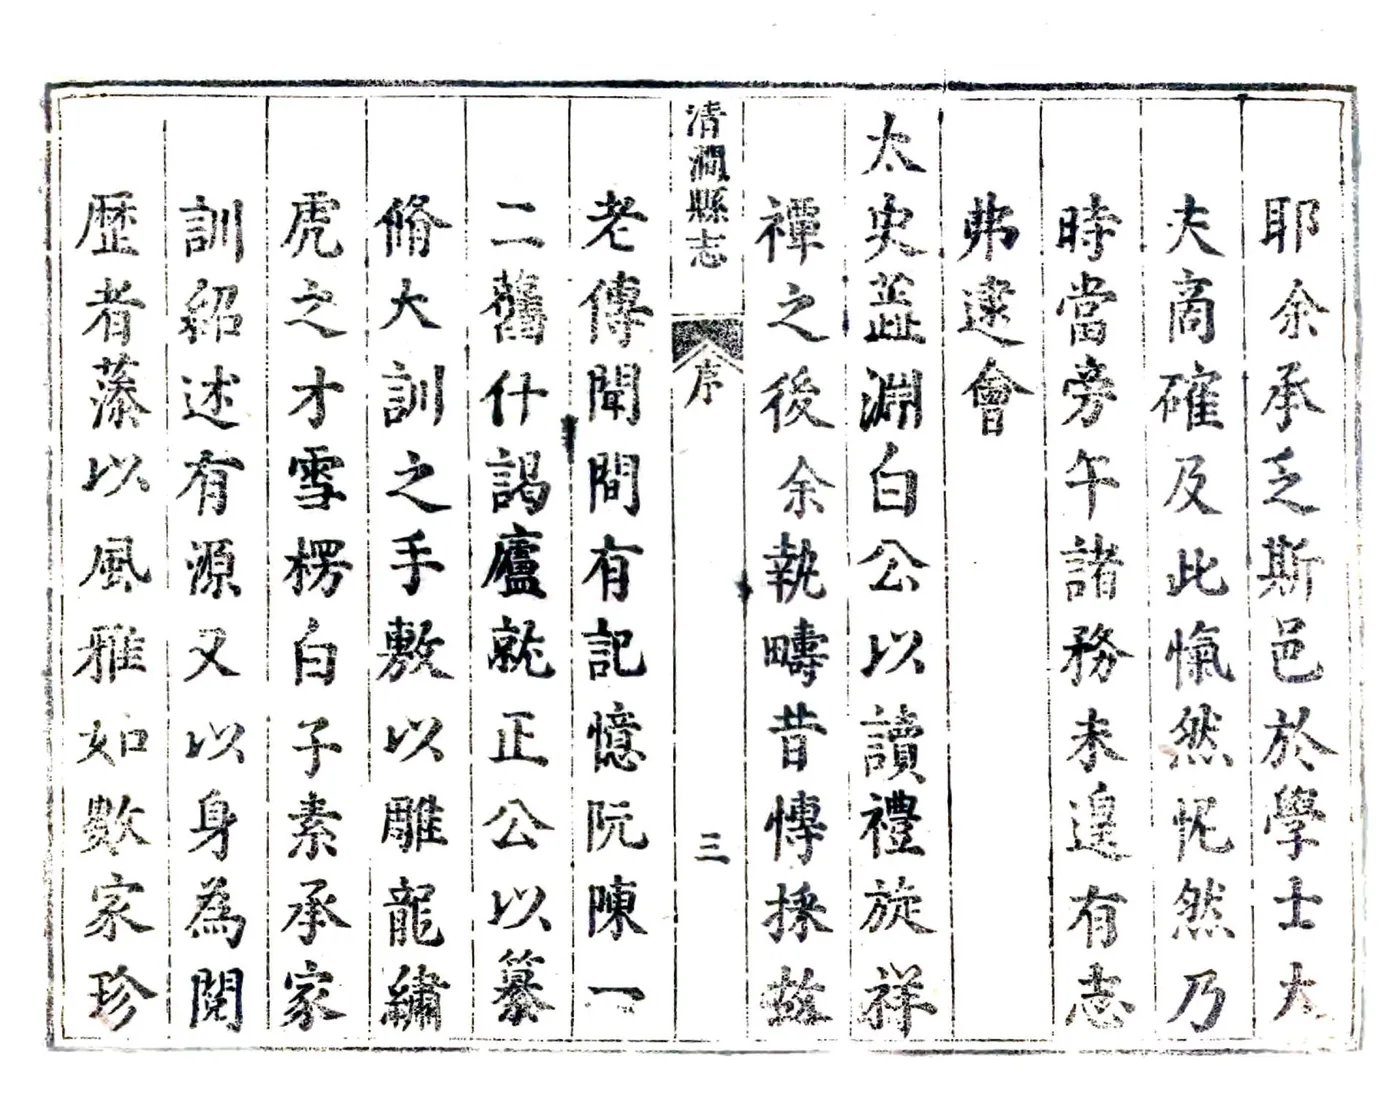 耶余承乏斯邑於學士大
夫商確及此愾然怩然乃
時當旁午諸務未遑有志
弗逮會
太史蕋淵白公以讀禮旋祥
禫之後余執疇昔愽採故
清澗縣志 序 三
老傳聞間有記憶阮陳一
二舊什謁廬就正公以纂
脩大訓之手敷以雕龍繡
虎之才雪楞白子素承家
訓紹述有源又以身為閱
歷者藻以風雅如數家珍